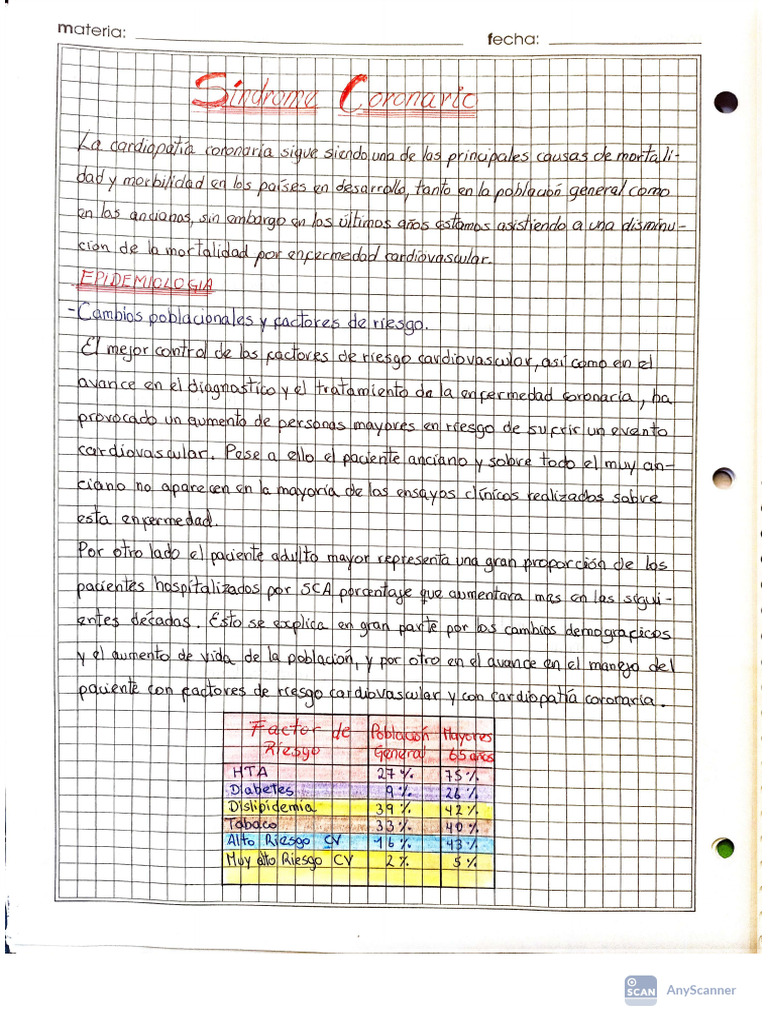 materia:
fecha:
Síndrome Coronario
La cardiopatía coronaria sigue siendo una de las principales causas de mortali-
dad y morbilidad en los países en desarrollo, tanto en la población general como
en los ancianos, sin embargo en los últimos años estamos asistiendo a una disminu-
ción de la mortalidad por enfermedad cardiovascular.
EPIDEMIOLOGIA
- Cambios poblacionales y factores de riesgo.
El mejor control de las factores de riesgo cardiovascular, así como en el
avance en el diagnostico y el tratamiento de la enfermedad coronaria, ha
provocado un aumento de personas mayores en riesgo de sufrir un evento
cardiovascular. Pese a ello el paciente anciano y sobre todo el muy an-
ciano no aparecen en la mayoría de las ensayos clínicos realizados sobre
esta enfermedad.
Por otro lado el paciente adulto mayor representa una gran proporción de los
pacientes hospitalizados por SCA porcentaje que aumentara mas en las sigui-
entes décadas. Esto se explica en gran parte por los cambios demograficos
y el aumento de vida de la población, y por otro en el avance en el manejo del
paciente con factores de riesgo cardiovascular y con cardiopatía coronaria.
Factor de Riesgo Población General Mayores 65 años
HTA 27% 75%
Diabetes 9% 26%
Dislipidemia 39% 42%
Tabaco 33% 40%
Alto Riesgo CV 16% 43%
Muy alto Riesgo CV 2% 5%
SCAN AnyScanner